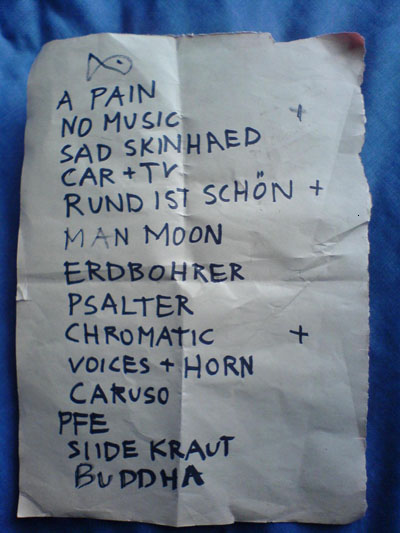 A PAIN
NO MUSIC +
SAD SKINHAED
CAR + TV
RUND IST SCHÖN +
MAN MOON
ERDBOHRER
PSALTER
CHROMATIC +
VOICES + HORN
CARUSO
PFE
SIIDE KRAUT
BUDDHA